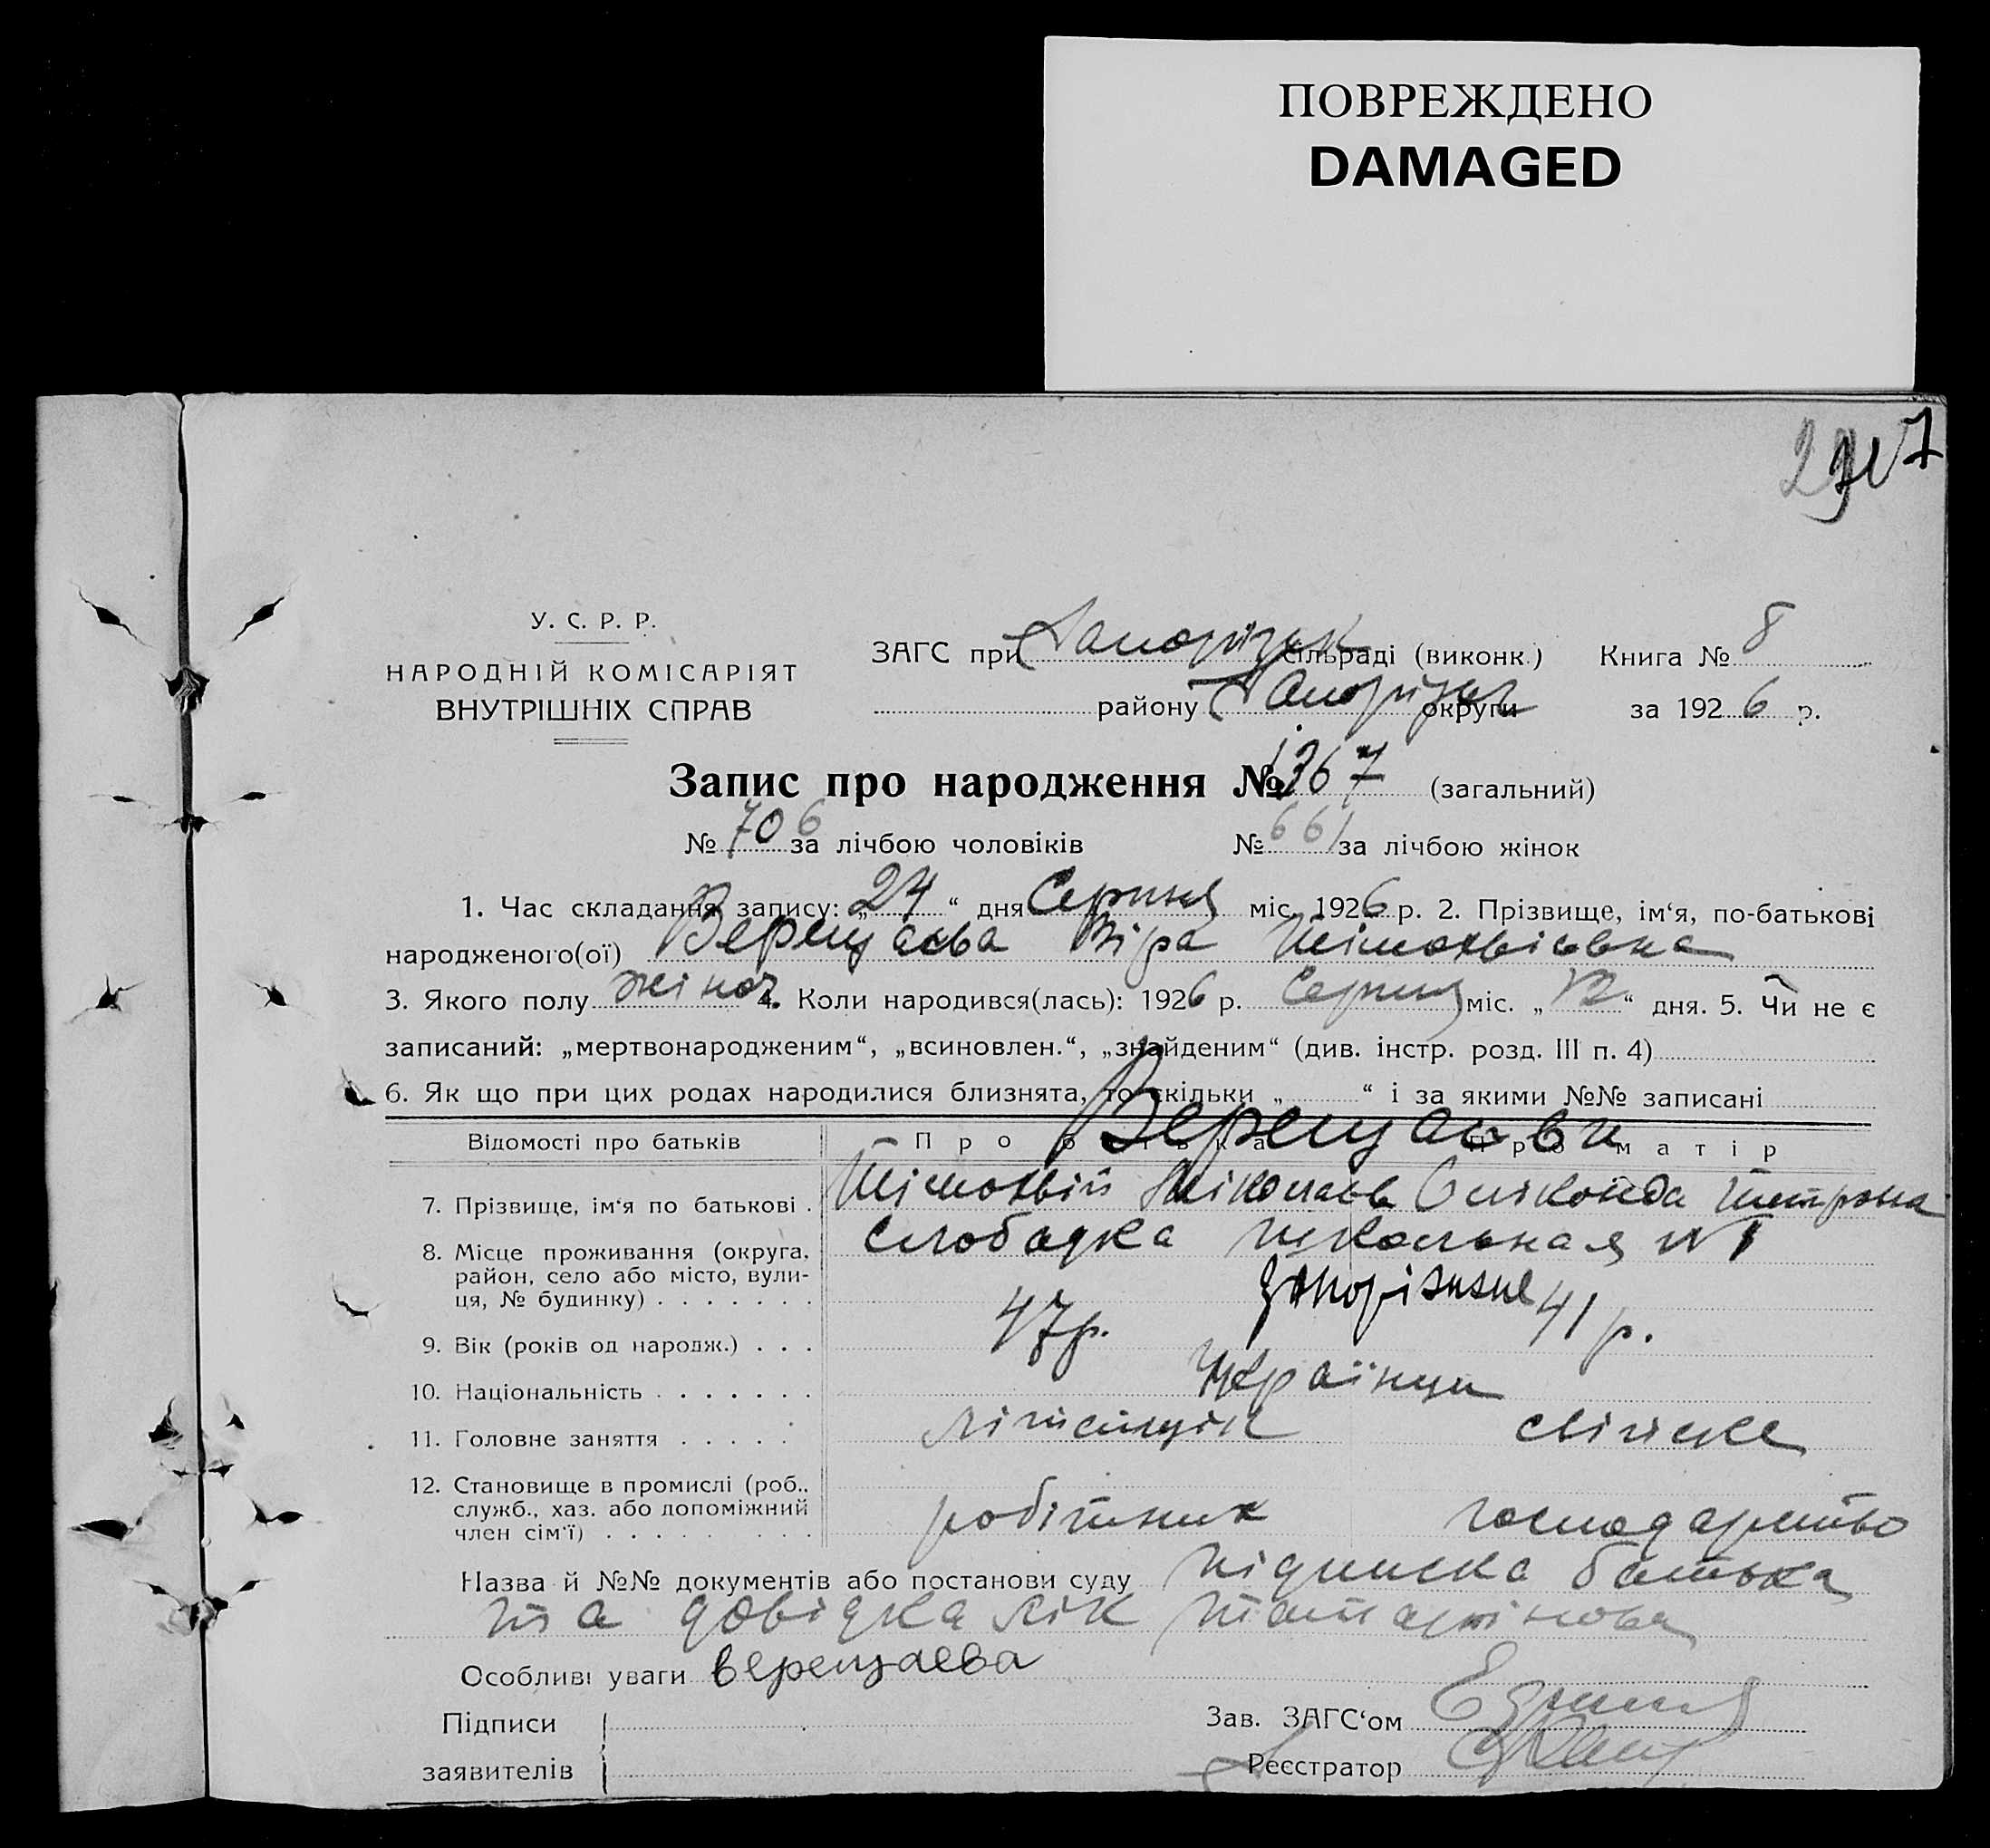 ПОВРЕЖДЕНО
DAMAGED
У. С. Р. Р.
НАРОДНІЙ КОМІСАРІЯТ
ВНУТРІШНІХ СПРАВ
ЗАГС при Запорізьк сільраді (виконк.) Книга № 8
району Запорізьк округи за 1926 р.
Запис про народження № 1367 (загальний)
№ 706 за лічбою чоловіків № 661 за лічбою жінок
1. Час складання запису: „24“ дня Серпня міс. 1926 р. 2. Прізвище, ім‘я, по-батькові
народженого(ої) Верещаєва Віра Тімохвіівна
3. Якого полу жіноч. 4. Коли народився(лась): 1926 р. Серпня міс. „12“ дня. 5. Чи не є
записаний: „мертвонародженим“, „всиновлен.“, „знайденим“ (див. інстр. розд. III п. 4)
6. Як що при цих родах народилися близнята, то скільки „ “ і за якими №№ записані
Відомості про батьків Про батька Про матір
Верещаєви
7. Прізвище, ім‘я по батькові . Тімохвій Ніколаєв
8. Місце проживання (округа, район, село або місто, вулиця, № будинку) . . . . . . . Слободка школьная №1
Запоріжже
9. Вік (років од народж.) . . . 47р. 41 р.
10. Національність . . . . . . . Українци
11. Головне заняття . . . . .
12. Становище в промислі (роб., служб., хаз. або допоміжний член сім‘ї) . . . . . . . . робітник господарство
Назва й №№ документів або постанови суду підписка батька
та довідка лік
Особливі уваги Верещаева
Підписи Зав. ЗАГС‘ом
заявителів Реєстратор